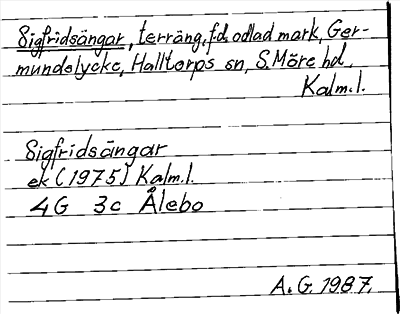 Sigfridsängar, terräng, f.d. odlad mark, Ger-
mundslycke, Halltorps sn, S. Möre hd,
Kalm. l.
Sigfridsängar
ek (1975) Kalm. l.
4G 3c Ålebo
A. G. 1987.